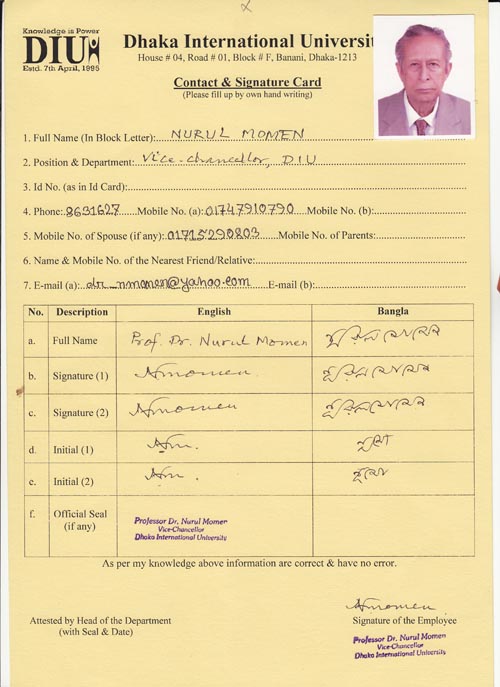 Knowledge is Power
DIU
Estd. 7th April, 1995
Dhaka International Universit
House # 04, Road # 01, Block # F, Banani, Dhaka-1213
Contact & Signature Card
(Please fill up by own hand writing)
1. Full Name (In Block Letter): NURUL MOMEN
2. Position & Department: Vice-Chancellor, DIU
3. Id No. (as in Id Card):
4. Phone: 8631627 Mobile No. (a): 01747910790 Mobile No. (b):
5. Mobile No. of Spouse (if any): 01715290803 Mobile No. of Parents:
6. Name & Mobile No. of the Nearest Friend/Relative:
7. E-mail (a): dr_nmomen@yahoo.com E-mail (b):
No. Description English Bangla
a. Full Name Prof. Dr. Nurul Momen
b. Signature (1)
c. Signature (2)
d. Initial (1)
e. Initial (2)
f. Official Seal (if any)
Professor Dr. Nurul Momen
Vice-Chancellor
Dhaka International University
As per my knowledge above information are correct & have no error.
Attested by Head of the Department
(with Seal & Date)
Signature of the Employee
Professor Dr. Nurul Momen
Vice-Chancellor
Dhaka International University